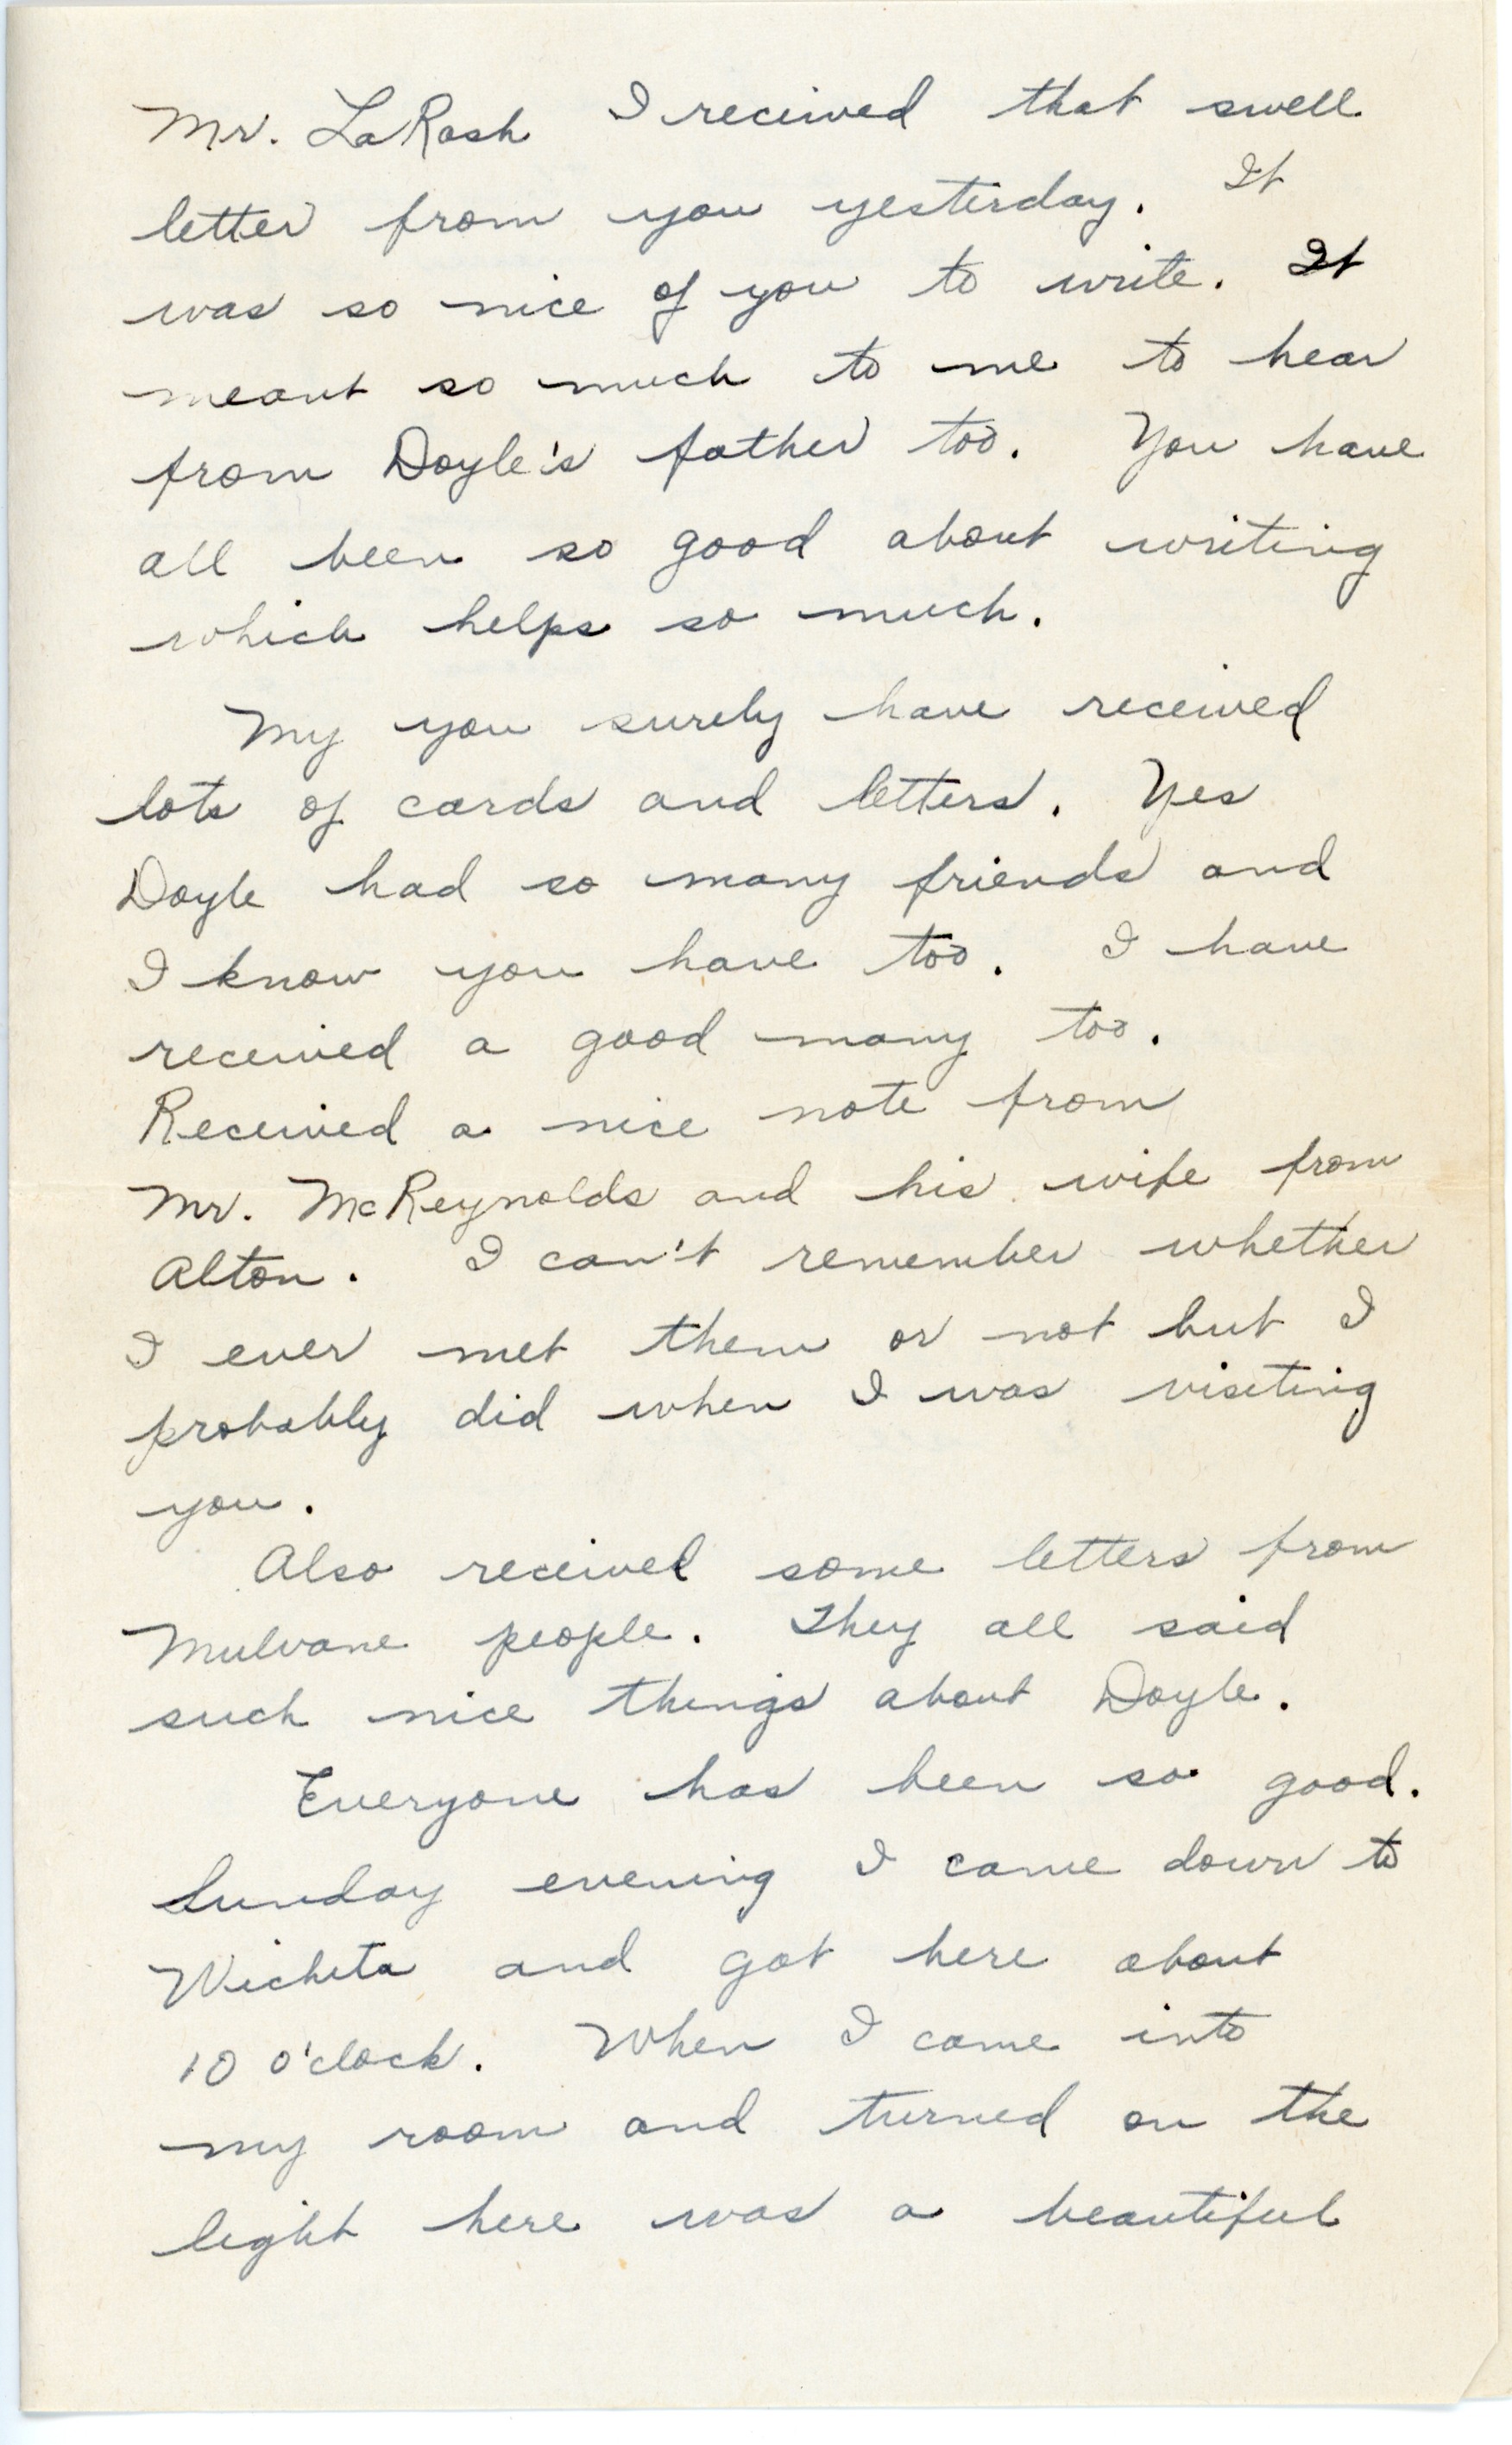 Mr. LaRosh I received that swell
letter from you yesterday. It
was so nice of you to write. It
meant so much to me to hear
from Doyle's father too. You have
all been so good about writing
which helps so much.
My you surely have received
lots of cards and letters. Yes
Doyle had so many friends and
I know you have too. I have
received a good many too.
Received a nice note from
Mr. McReynolds and his wife from
Alton. I can't remember whether
I ever met them or not but I
probably did when I was visiting
you.
Also received some letters from
Mulvane people. They all said
such nice things about Doyle.
Everyone has been so good.
Sunday evening I came down to
Wichita and got here about
10 o'clock. When I came into
my room and turned on the
light here was a beautiful